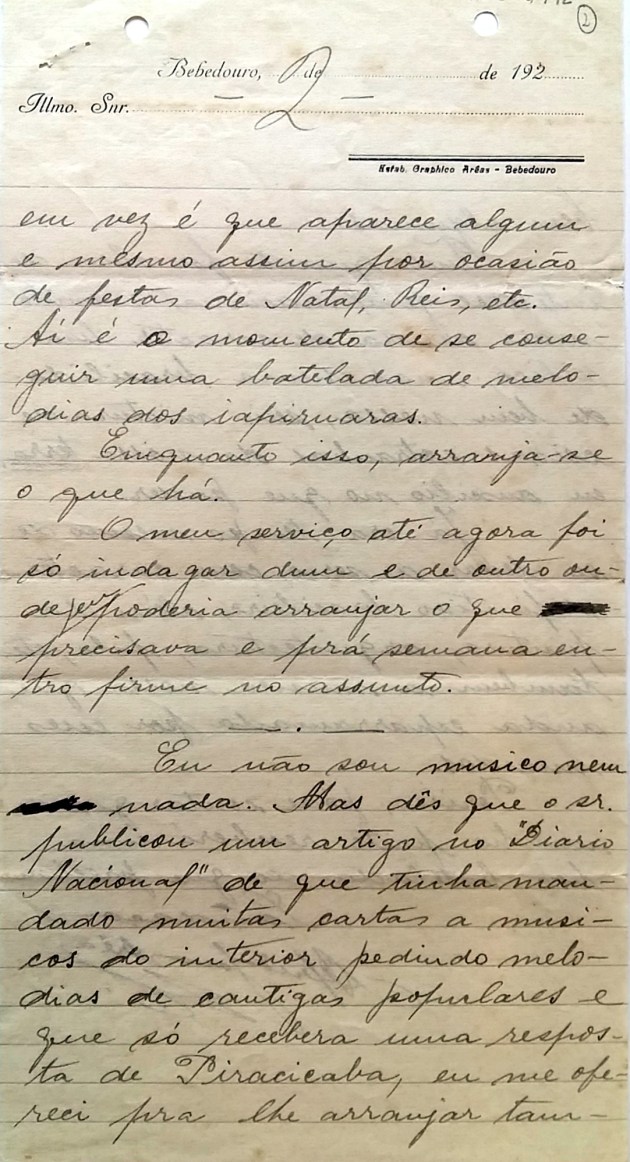 2
Bebedouro, de de 192
Illmo. Snr. — 2 —
Estab. Graphico Arêas - Bebedouro
em vez é que aparece algum
e mesmo assim por ocasião
de festas de Natal, Reis, etc.
Aí é o momento de se conse-
guir uma batelada de melo-
dias dos iapiruaras.
Emquanto isso, arranja-se
o que há.
O meu serviço até agora foi
só indagar dum e de outro on-
de eu poderia arranjar o que
precisava e prá semana en-
tro firme no assunto.
Eu não sou musico nem
nada. Mas dês que o sr.
publicou um artigo no "Diario
Nacional" de que tinha man-
dado muitas cartas a musi-
cos do interior pedindo melo-
dias de cantigas populares e
que só recebera uma respos-
ta de Piracicaba, eu me ofe-
reci pra lhe arranjar tam-